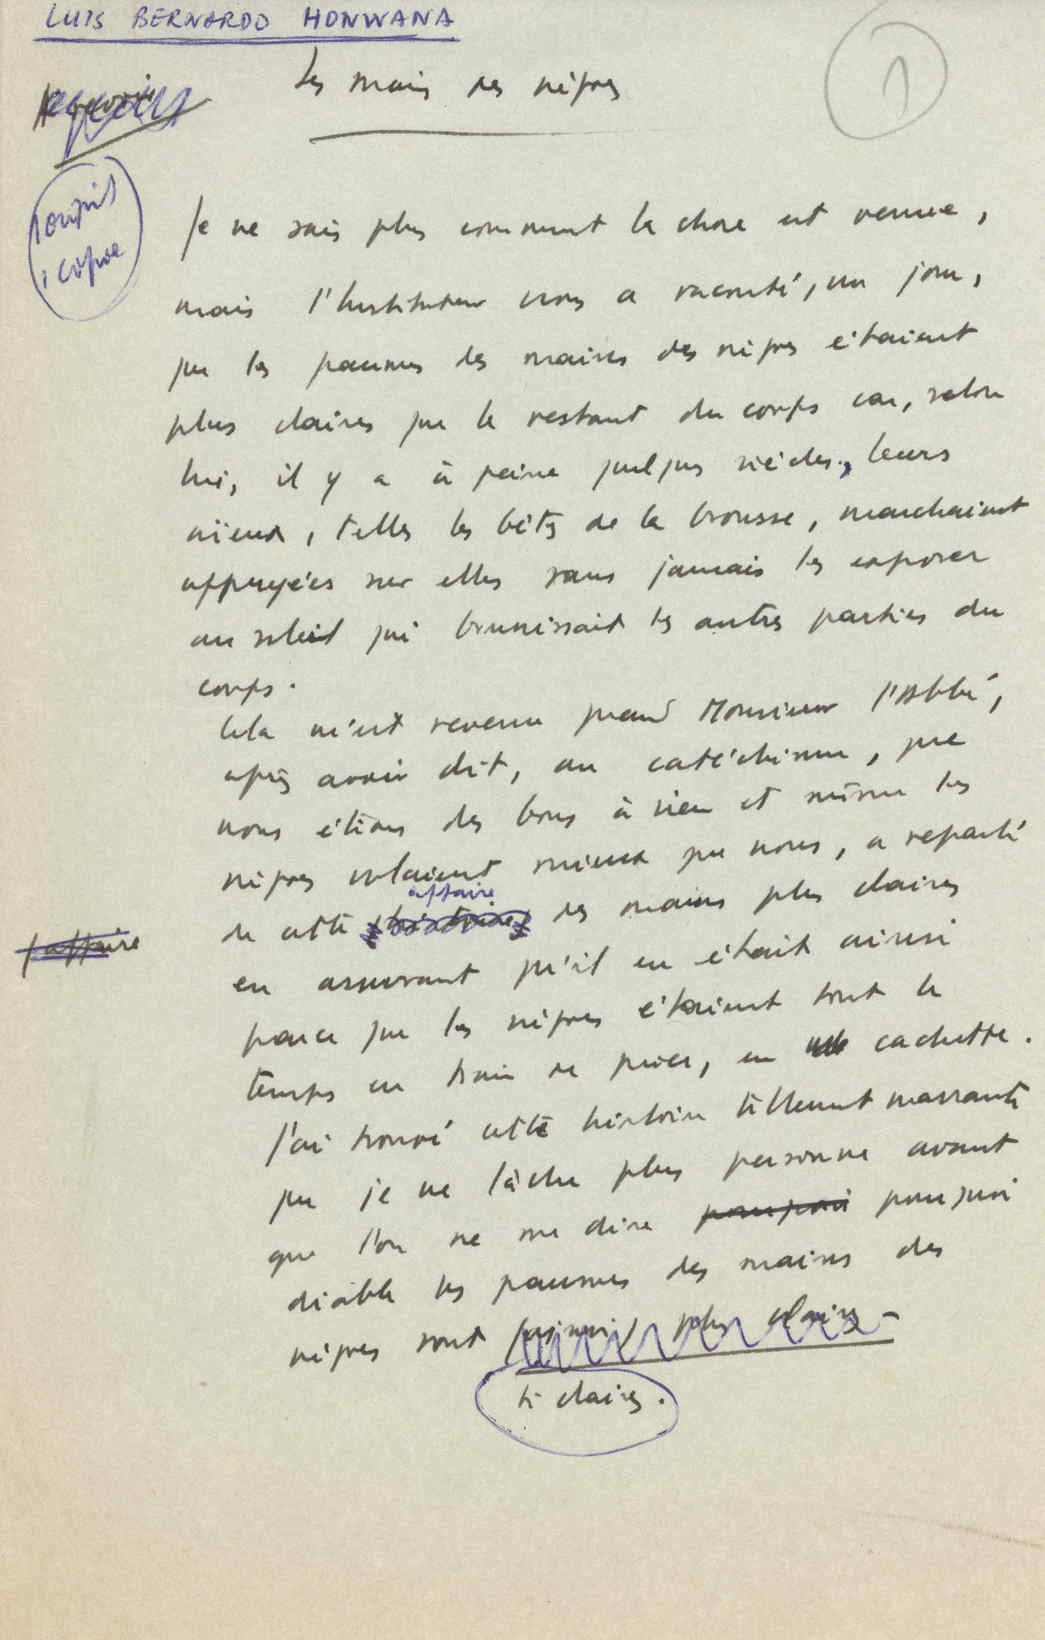 LUIS BERNARDO HONWANA
1
Les mains des nègres
1 copie
Je ne sais plus comment la chose est venue,
mais l'Instituteur nous a raconté, un jour,
que les paumes des mains des nègres étaient
plus claires que le restant du corps car, selon
lui, il y a à peine quelques siècles, leurs
aïeux, telles les bêtes de la brousse, marchaient
appuyées sur elles sans jamais les exposer
au soleil qui brunissait les autres parties du
corps.
Cela m'est revenu quand Monsieur l'Abbé,
après avoir dit, au catéchisme, que
nous étions des bons à rien et même les
nègres valaient mieux que nous, a reparlé
affaire
de cette histoire des mains plus claires
l'affaire
en assurant qu'il en était ainsi
parce que les nègres étaient tout le
temps en train de prier, en cachette.
J'ai trouvé cette histoire tellement marrante
que je ne lâche plus personne avant
que l'on ne me dise pourquoi pourquoi
diable les paumes des mains des
nègres sont plus claires
si claires.